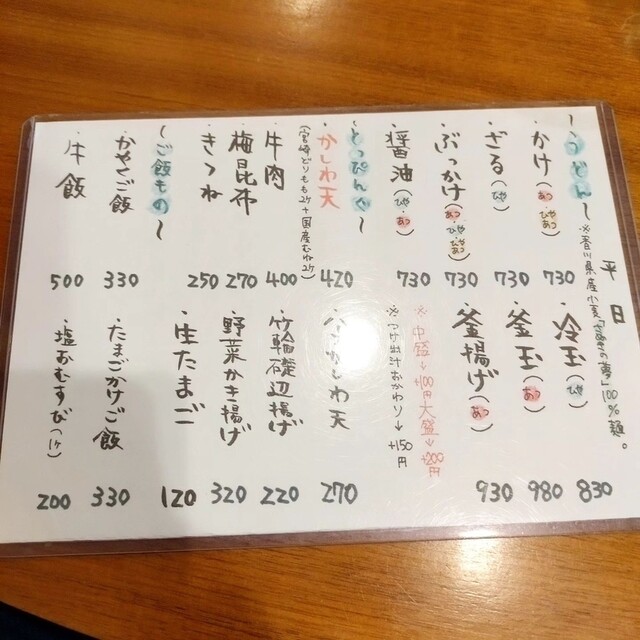 平日
〜うどん〜
※香川県産小麦「さぬきの夢」100%麺。
・かけ(あつ・ひや・ひやあつ) 730
・ざる(ひや) 730
・ぶっかけ(あつ・ひや・ひやあつ) 730
・醤油(ひや・あつ) 730
・冷玉(ひや) 830
・釜玉(あつ) 980
・釜揚げ(あつ) 930
※中盛→+100円 大盛→+200円
※つけ出汁おかわり→+150円
〜とっぴんぐ〜
・かしわ天 420
(宮崎どりもも2ケ+国産むね2ケ)
・牛肉 400
・梅昆布 270
・きつね 250
かしわ天 270
・竹輪磯辺揚げ 220
・野菜かき揚げ 320
・生たまご 120
〜ご飯もの〜
・かやくご飯 330
・牛飯 500
・たまごかけご飯 330
・塩おむすび(1ケ) 200